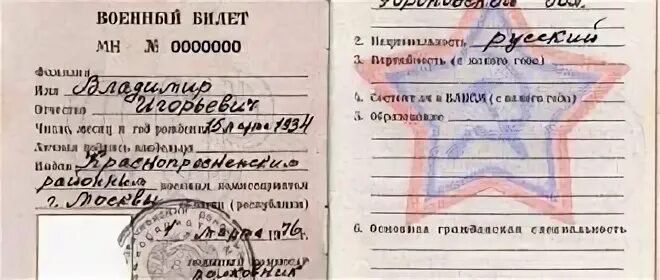 ВОЕННЫЙ БИЛЕТ
МН № 0000000
Фамилия
Имя Владимир
Отчество Игорьевич
Число, месяц и год рождения 15 марта 1934
Личная подпись владельца
Выдан Краснопресненским
районным военным комиссариатом
г. Москвы (республики)
марта 1976
военный комиссар
полковник
обл.
2. Национальность русский
3. Партийность (с какого года)
4. Состоит ли в ВЛКСМ (с какого года)
5. Образование
6. Основная гражданская специальность